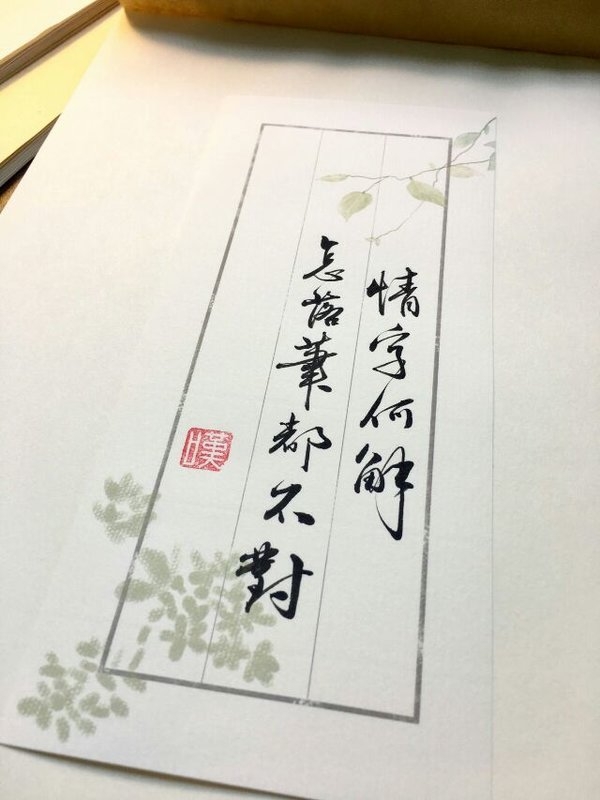 情字何解
怎落筆都不對
嘆